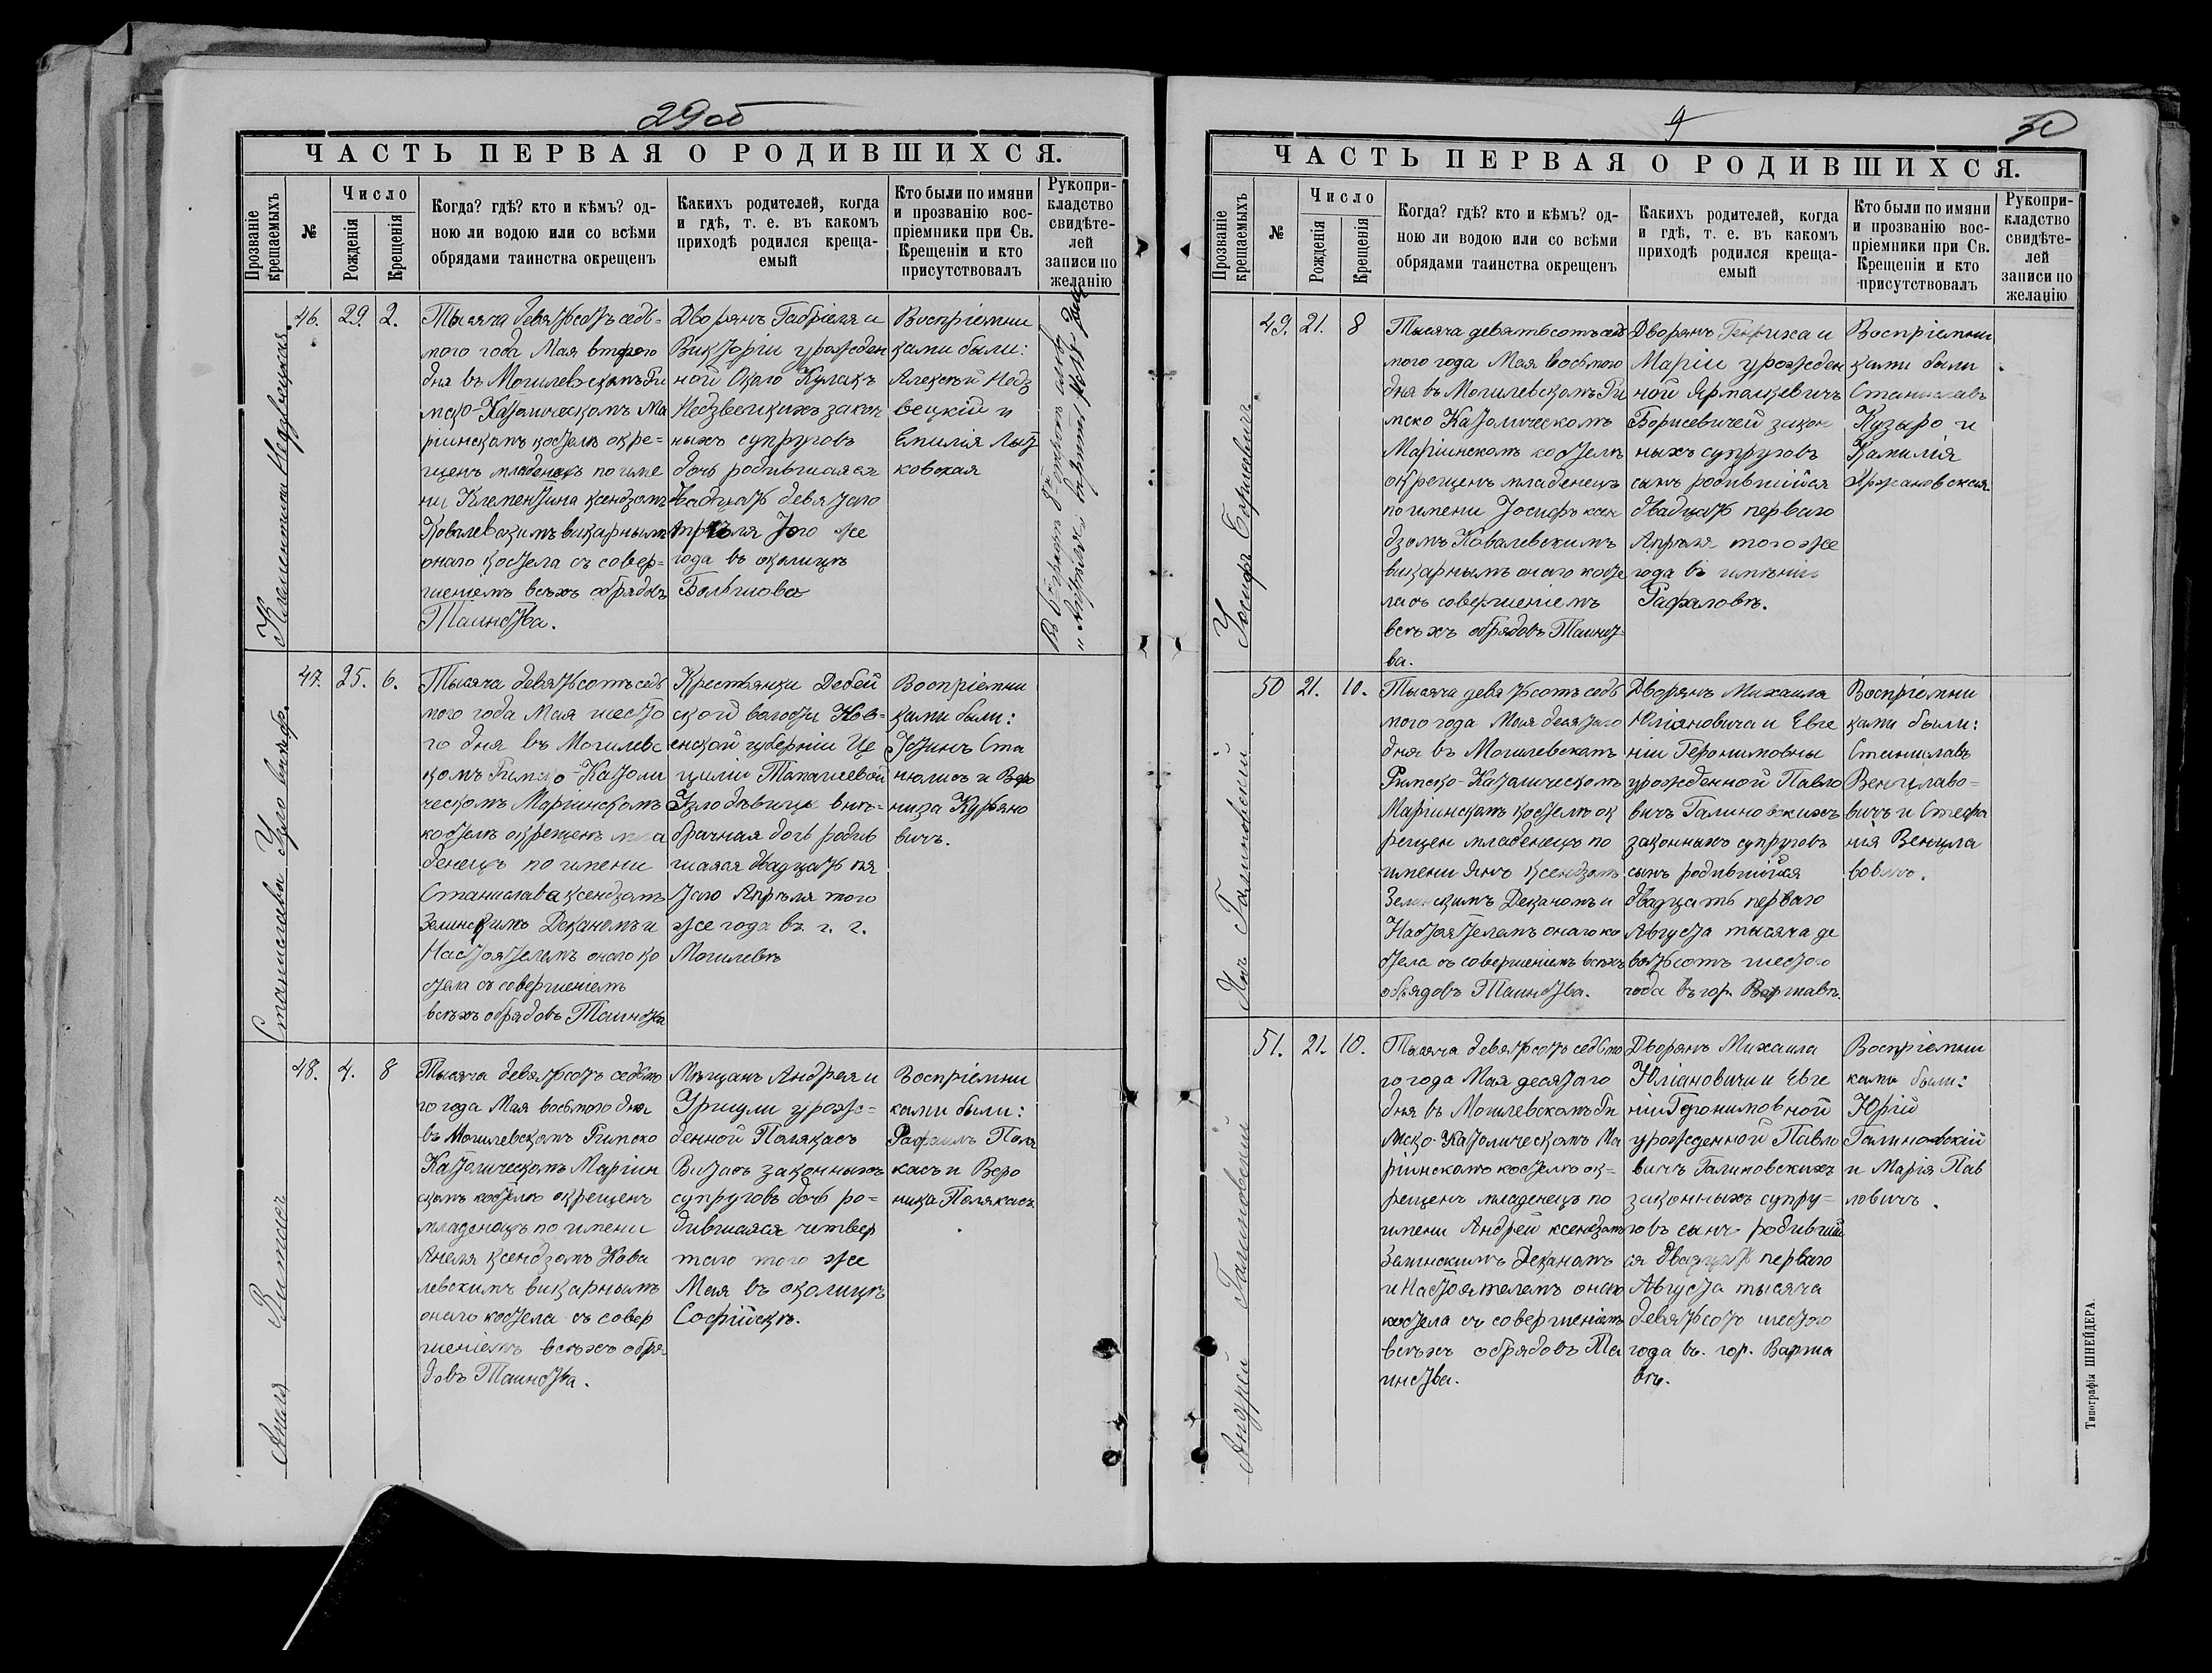 29 об
ЧАСТЬ ПЕРВАЯ О РОДИВШИХСЯ.
Прозваніе крещаемыхъ
№
Число
Рожденія
Крещенія
Когда? гдѣ? кто и кѣмъ? од-
ною ли водою или со всѣми
обрядами таинства окрещенъ
Какихъ родителей, когда
и гдѣ, т. е. въ какомъ
приходѣ родился креща-
емый
Кто были по имяни
и прозванію вос-
пріемники при Св.
Крещеніи и кто
присутствовалъ
Рукопри-
кладство
свидѣте-
лей
записи по
желанію
Клементина Недзвецкая.
46.
29.
2.
Тысяча девятьсотъ седь-
мого года Мая второго
дня въ Могилевскомъ Ри
мско-Католическомъ Ма
ріинскомъ костелѣ окре=
щенъ младенецъ по име
ни Клементина ксендзомъ
Ковалевскимъ викарнымъ
онаго костела съ совер=
шеніемъ всѣхъ обрядовъ
Таинства.
Дворянъ Габріеля и
Викторіи урожден
ной Около Кулакъ
Недзвецкихъ закон
ныхъ супруговъ
дочь родившаяся
двадцать девятаго
Апрѣля того же
года въ околицѣ
Воспріемни
ками были:
Алексѣй Недз
вецкій и
Емилія Лыт
ковская
Станислава Узло внебр.
47.
25.
6.
Тысяча девятьсотъ седь
мого года Мая шесто
го дня въ Могилевс
комъ Римско-Католи
ческомъ Маріинскомъ
костелѣ окрещенъ мла
денецъ по имени
Станислава ксендзомъ
Зелинскимъ Деканомъ и
Настоятелемъ онаго ко
стела съ совершеніемъ
всѣхъ обрядовъ Таинства
Крестьянки Дебей
ской волости Ков=
енской губерніи Це
циліи
дѣвицы внѣ=
брачная дочь родив
шаяся двадцать пя
таго Апрѣля того
же года въ г. г.
Могилевѣ
Воспріемни
ками были:
Устинъ Ста
нюлисъ и Веро
ника Курьяно
вичъ.
Анеля Витасъ
48.
4.
8
Тысяча девятьсотъ седьмо
го года Мая восьмого дня
въ Могилевскомъ Римско
Католическомъ Маріин
скомъ костелѣ окрещенъ
младенецъ по имени
Анеля ксендзомъ Кова
левскимъ викарнымъ
онаго костела съ совер
шеніемъ всѣхъ обря-
довъ Таинства.
Мѣщанъ Андрея и
Уршули урож=
денной Полякасъ
Витасъ законныхъ
супруговъ дочь ро=
дившаяся четвер
таго того же
Мая въ околицѣ
Софійскѣ.
Воспріемни
ками были:
Рафаилъ Поля
касъ и Веро
ника Полякасъ
9
30
ЧАСТЬ ПЕРВАЯ О РОДИВШИХСЯ.
Прозваніе крещаемыхъ
№
Число
Рожденія
Крещенія
Когда? гдѣ? кто и кѣмъ? од-
ною ли водою или со всѣми
обрядами таинства окрещенъ
Какихъ родителей, когда
и гдѣ, т. е. въ какомъ
приходѣ родился креща-
емый
Кто были по имяни
и прозванію вос-
пріемники при Св.
Крещеніи и кто
присутствовалъ
Рукопри-
кладство
свидѣте-
лей
записи по
желанію
Іосифъ Борисевичъ.
49.
21.
8
Тысяча девятьсотъ седь
мого года Мая восьмого
дня въ Могилевскомъ Ри
мско Католическомъ
Маріинскомъ костелѣ
окрещенъ младенецъ
по имени Іосифъ ксен
дзомъ Ковалевскимъ
викарнымъ онаго косте
ла съ совершеніемъ
всѣхъ обрядовъ Таинст-
ва.
Дворянъ Генриха и
Маріи урожден
ной Ярмолкевичъ
Борисевичей закон
ныхъ супруговъ
сынъ родившійся
двадцать перваго
Апрѣля того же
года въ имѣніи
Рафаловѣ.
Воспріемни
ками были
Станиславъ
Кузыро и
Камилія
Хржановская
Янъ Галиновскій
50
21.
10.
Тысяча девятьсотъ седь
мого года Мая десятаго
дня въ Могилевскомъ
Римско-Католическомъ
Маріинскомъ костелѣ ок
рещен младенецъ по
имени Янъ ксендзомъ
Зелинскимъ Деканомъ и
Настоятелемъ онаго ко
стела съ совершеніемъ всѣхъ
обрядовъ Таинства.
Дворянъ Михаила
Юліановича и Евге
ніи Геронимовны
урожденной Павло
вичъ Галиновскихъ
законныхъ супруговъ
сынъ родившійся
двадцать перваго
Августа тысяча де
вятьсотъ шестого
года въ гор. Варшавѣ.
Воспріемни
ками были:
Станиславъ
Венцлаво=
вичъ и Стефа
нія Венцла
вовичъ.
Андрей Галиновскій
51.
21.
10.
Тысяча девятьсотъ седьмо
го года Мая десятаго
дня въ Могилевскомъ Ри
мско-Католическомъ Ма
ріинскомъ костелѣ ок=
рещенъ младенецъ по
имени Андрей ксендзомъ
Зелинскимъ Деканомъ
и Настоятелемъ онаго
костела съ совершеніемъ
всѣхъ обрядовъ Та
инства.
Дворянъ Михаила
Юліановича и Евге
ніи Геронимовной
урожденной Павло
вичъ Галиновскихъ
законныхъ супру=
говъ сынъ родившій
ся двадцать перваго
Августа тысяча
девятьсотъ шестого
года въ гор. Варша
вѣ.
Воспріемни
ками были:
Юрій
Галиновскій
и Марія Пав
ловичъ.
Типографія ШНЕЙДЕРА.